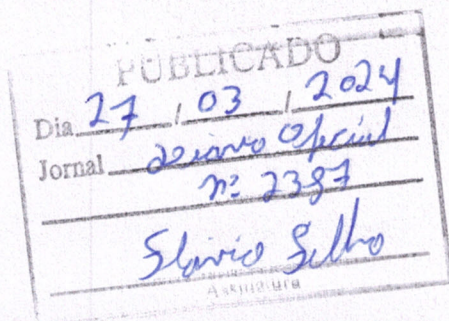 PUBLICADO
Dia 27 / 03 / 2024
Jornal Diário Oficial
nº 2387
Assinatura